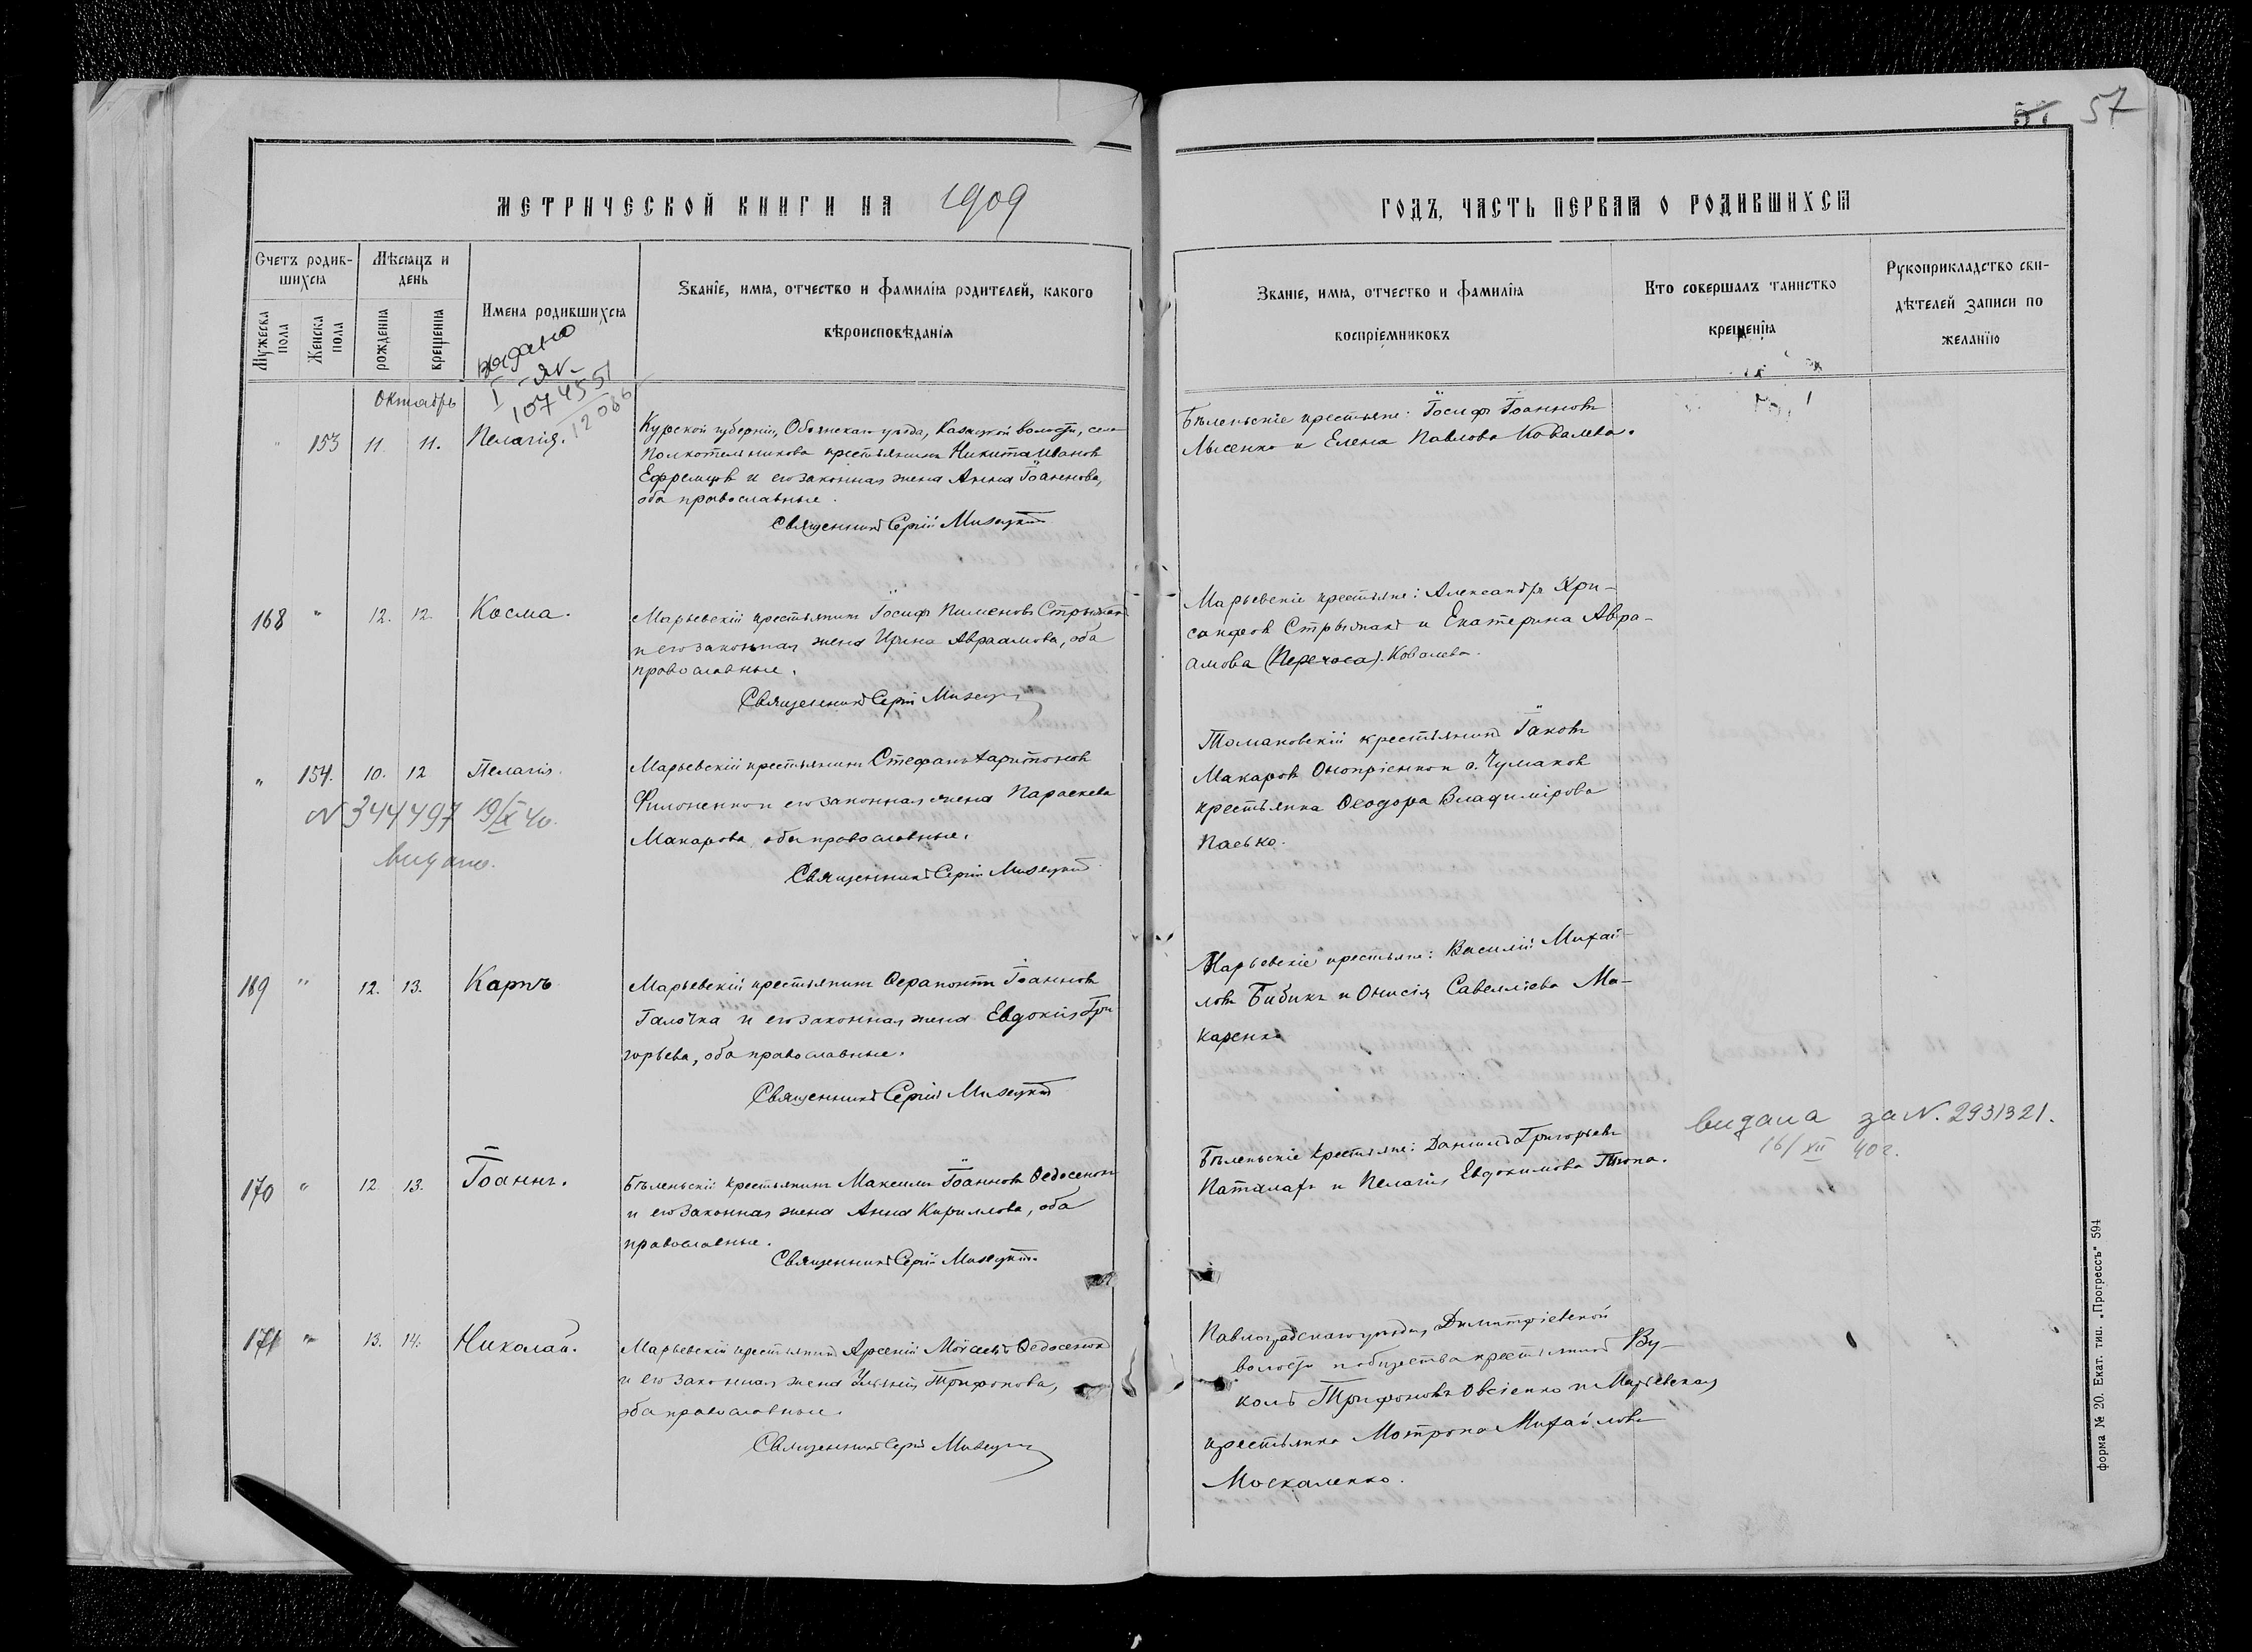 57
МЕТРИЧЕСКОЙ КНИГИ НА 1909
ГОДЪ, ЧАСТЬ ПЕРВАЯ О РОДИВШИХСЯ
Счетъ родив-
шихся
Мѣсяцъ и
день
Мужеска
пола
Женска
пола
рожденія
крещенія
Имена родившихся
Званіе, имя, отчество и фамилія родителей, какого
вѣроисповѣданія
Званіе, имя, отчество и фамилія
воспріемниковъ
Кто совершалъ таинство
крещенія
Рукоприкладство сви-
дѣтелей записи по
желанію
Октябрь
" 153 11. 11. Пелагія.
Курской губерніи, Обоянскаго уѣзда, волости, села
крестьянинъ Никита Иванов
Ефремовъ и его законная жена Анна Іоаннова,
оба православные.
Священникъ Сергій Мизецкій
Бѣленьскіе крестьяне: Іосифъ Іоанновъ
Лысенко и Елена Павлова Ковалева.
168 " 12. 12. Косма.
Марьевскій крестьянинъ Іосифъ Пименовъ Стрыжакъ
и его законная жена Ирина Авраамова, оба
православные.
Священникъ Сергій Мизецкій
Марьевскіе крестьяне: Александръ Хри-
санфовъ Стрыжакъ и Екатерина Авра-
амова Ковалева.
" 154. 10. 12 Пелагія.
N 344497 19/X 40.
видано.
Марьевскій крестьянинъ Стефанъ Харитоновъ
Филоненко и его законная жена Параскева
Макарова, оба православные.
Священникъ Сергій Мизецкій
Томаковскій крестьянинъ Іаковъ
Макаровъ Оноприенко с. Чумаков
крестьянка Ѳеодора Владимірова
Пасько.
169 " 12. 13. Карпъ
Марьевскій крестьянинъ Ѳерапонтъ Іоанновъ
Галочка и его законная жена Евдокія Гри-
горьева, оба православные.
Священникъ Сергій Мизецкій
Марьевскіе крестьяне: Василій Михай-
ловъ Бибикъ и Онисія Савелліева Ма-
каренко
170 " 12 13. Іоаннъ.
Бѣленьскій крестьянинъ Максимъ Іоанновъ Ѳедосенко
и его законная жена Анна Кириллова, оба
православные.
Священникъ Сергій Мизецкій
Бѣленьскіе крестьяне: Даніилъ Григорьевъ
Паталахъ и Пелагія Евдокимова
видана за N. 2931321.
16/XII 40г.
171 " 13. 14. Николай.
Марьевскій крестьянинъ Арсеній Моѵсеевъ Ѳедосенко
и его законная жена Трифонова,
оба православные.
Священникъ Сергій Мизецкій
Павлоградскаго уѣзда, Димитріевской
волости и общества крестьянинъ Ву-
колъ Трифоновъ Овсіенко и Марьевская
крестьянка Мотрона Михайлова
Москаленко.
форма № 20. Екат. тип. „Прогрессъ" 594